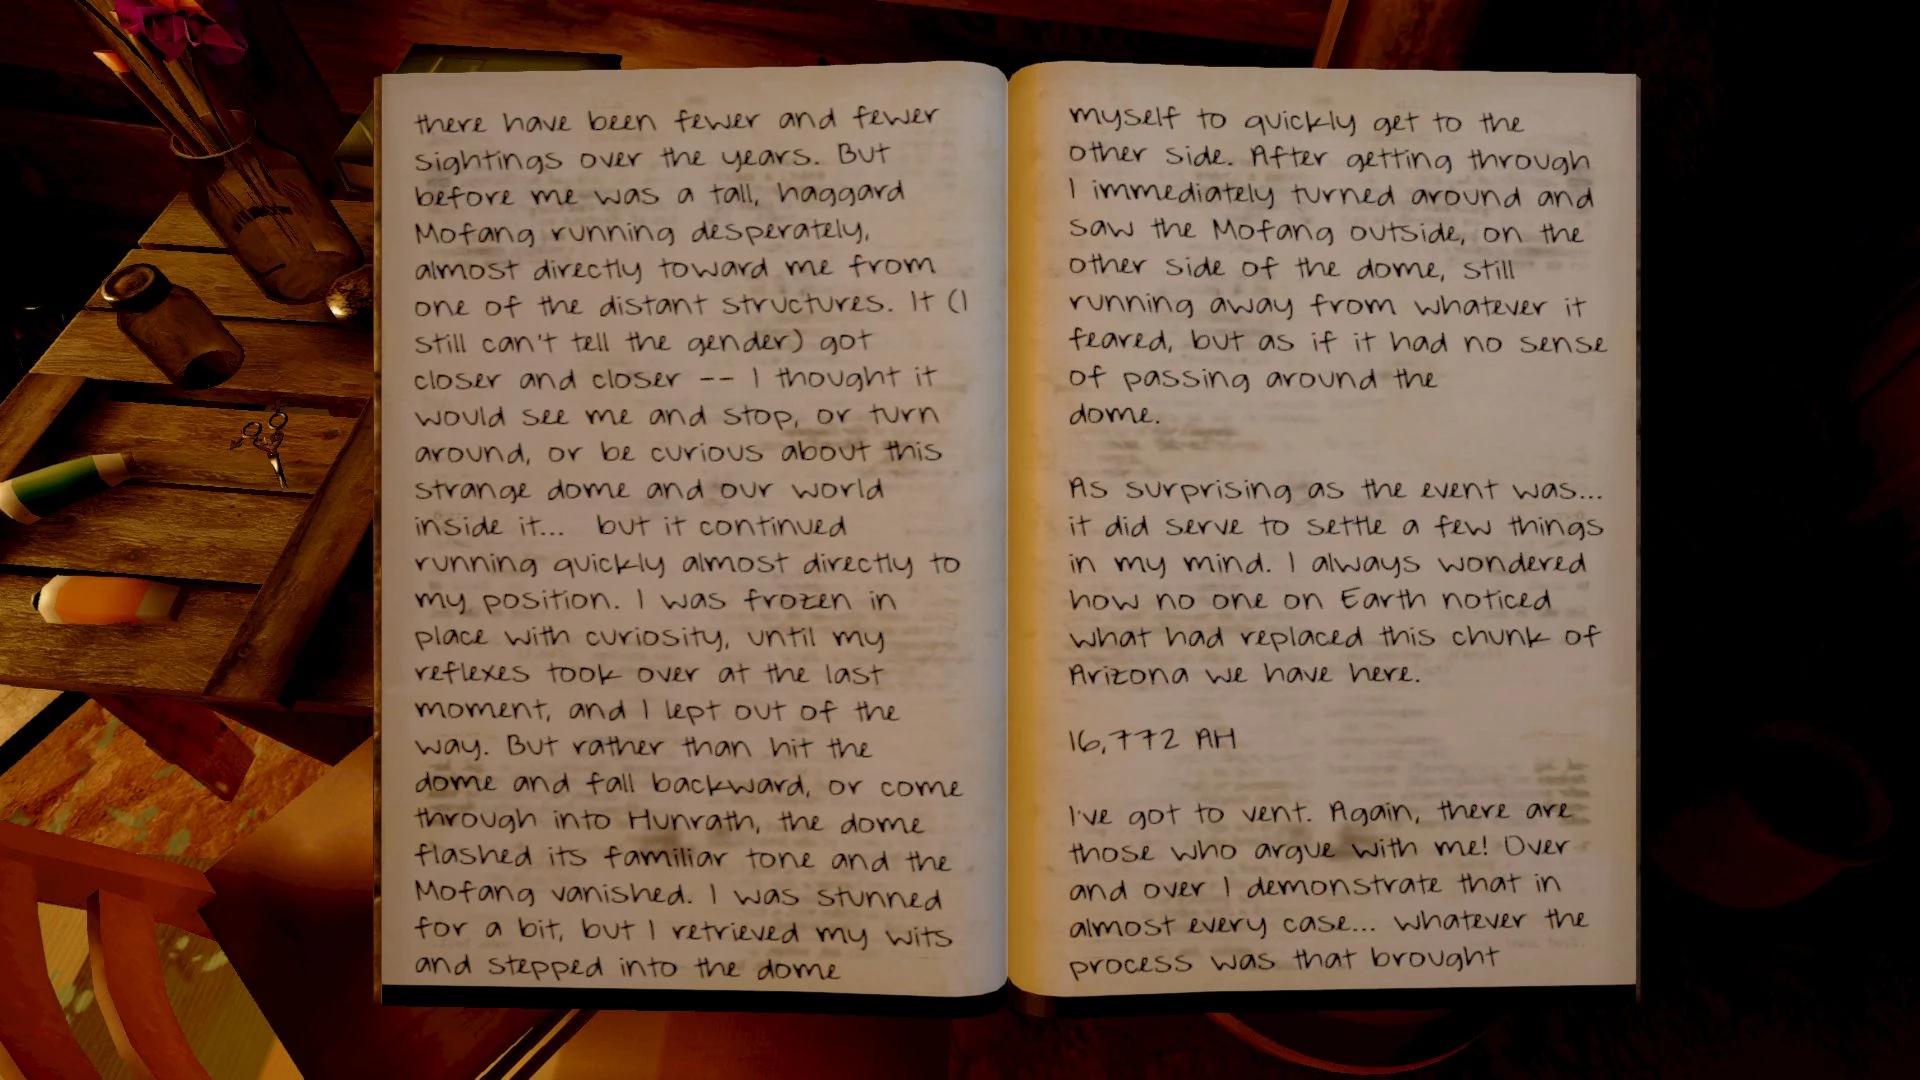 there have been fewer and fewer
sightings over the years. But
before me was a tall, haggard
Mofang running desperately,
almost directly toward me from
one of the distant structures. It (I
still can't tell the gender) got
closer and closer -- I thought it
would see me and stop, or turn
around, or be curious about this
strange dome and our world
inside it... but it continued
running quickly almost directly to
my position. I was frozen in
place with curiosity, until my
reflexes took over at the last
moment, and I lept out of the
way. But rather than hit the
dome and fall backward, or come
through into Hunrath, the dome
flashed its familiar tone and the
Mofang vanished. I was stunned
for a bit, but I retrieved my wits
and stepped into the dome
myself to quickly get to the
other side. After getting through
I immediately turned around and
saw the Mofang outside, on the
other side of the dome, still
running away from whatever it
feared, but as if it had no sense
of passing around the
dome.
As surprising as the event was...
it did serve to settle a few things
in my mind. I always wondered
how no one on Earth noticed
what had replaced this chunk of
Arizona we have here.
16,772 AH
I've got to vent. Again, there are
those who argue with me! Over
and over I demonstrate that in
almost every case... whatever the
process was that brought